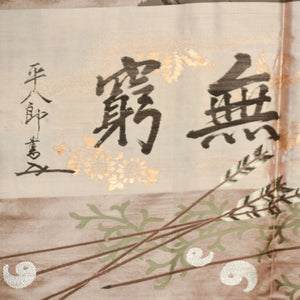 無窮
平八郎書